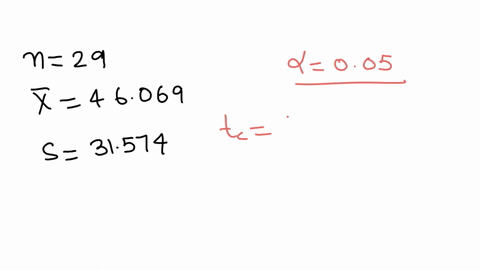 n = 29
x̄ = 46.069
s = 31.574
α = 0.05
t_c =